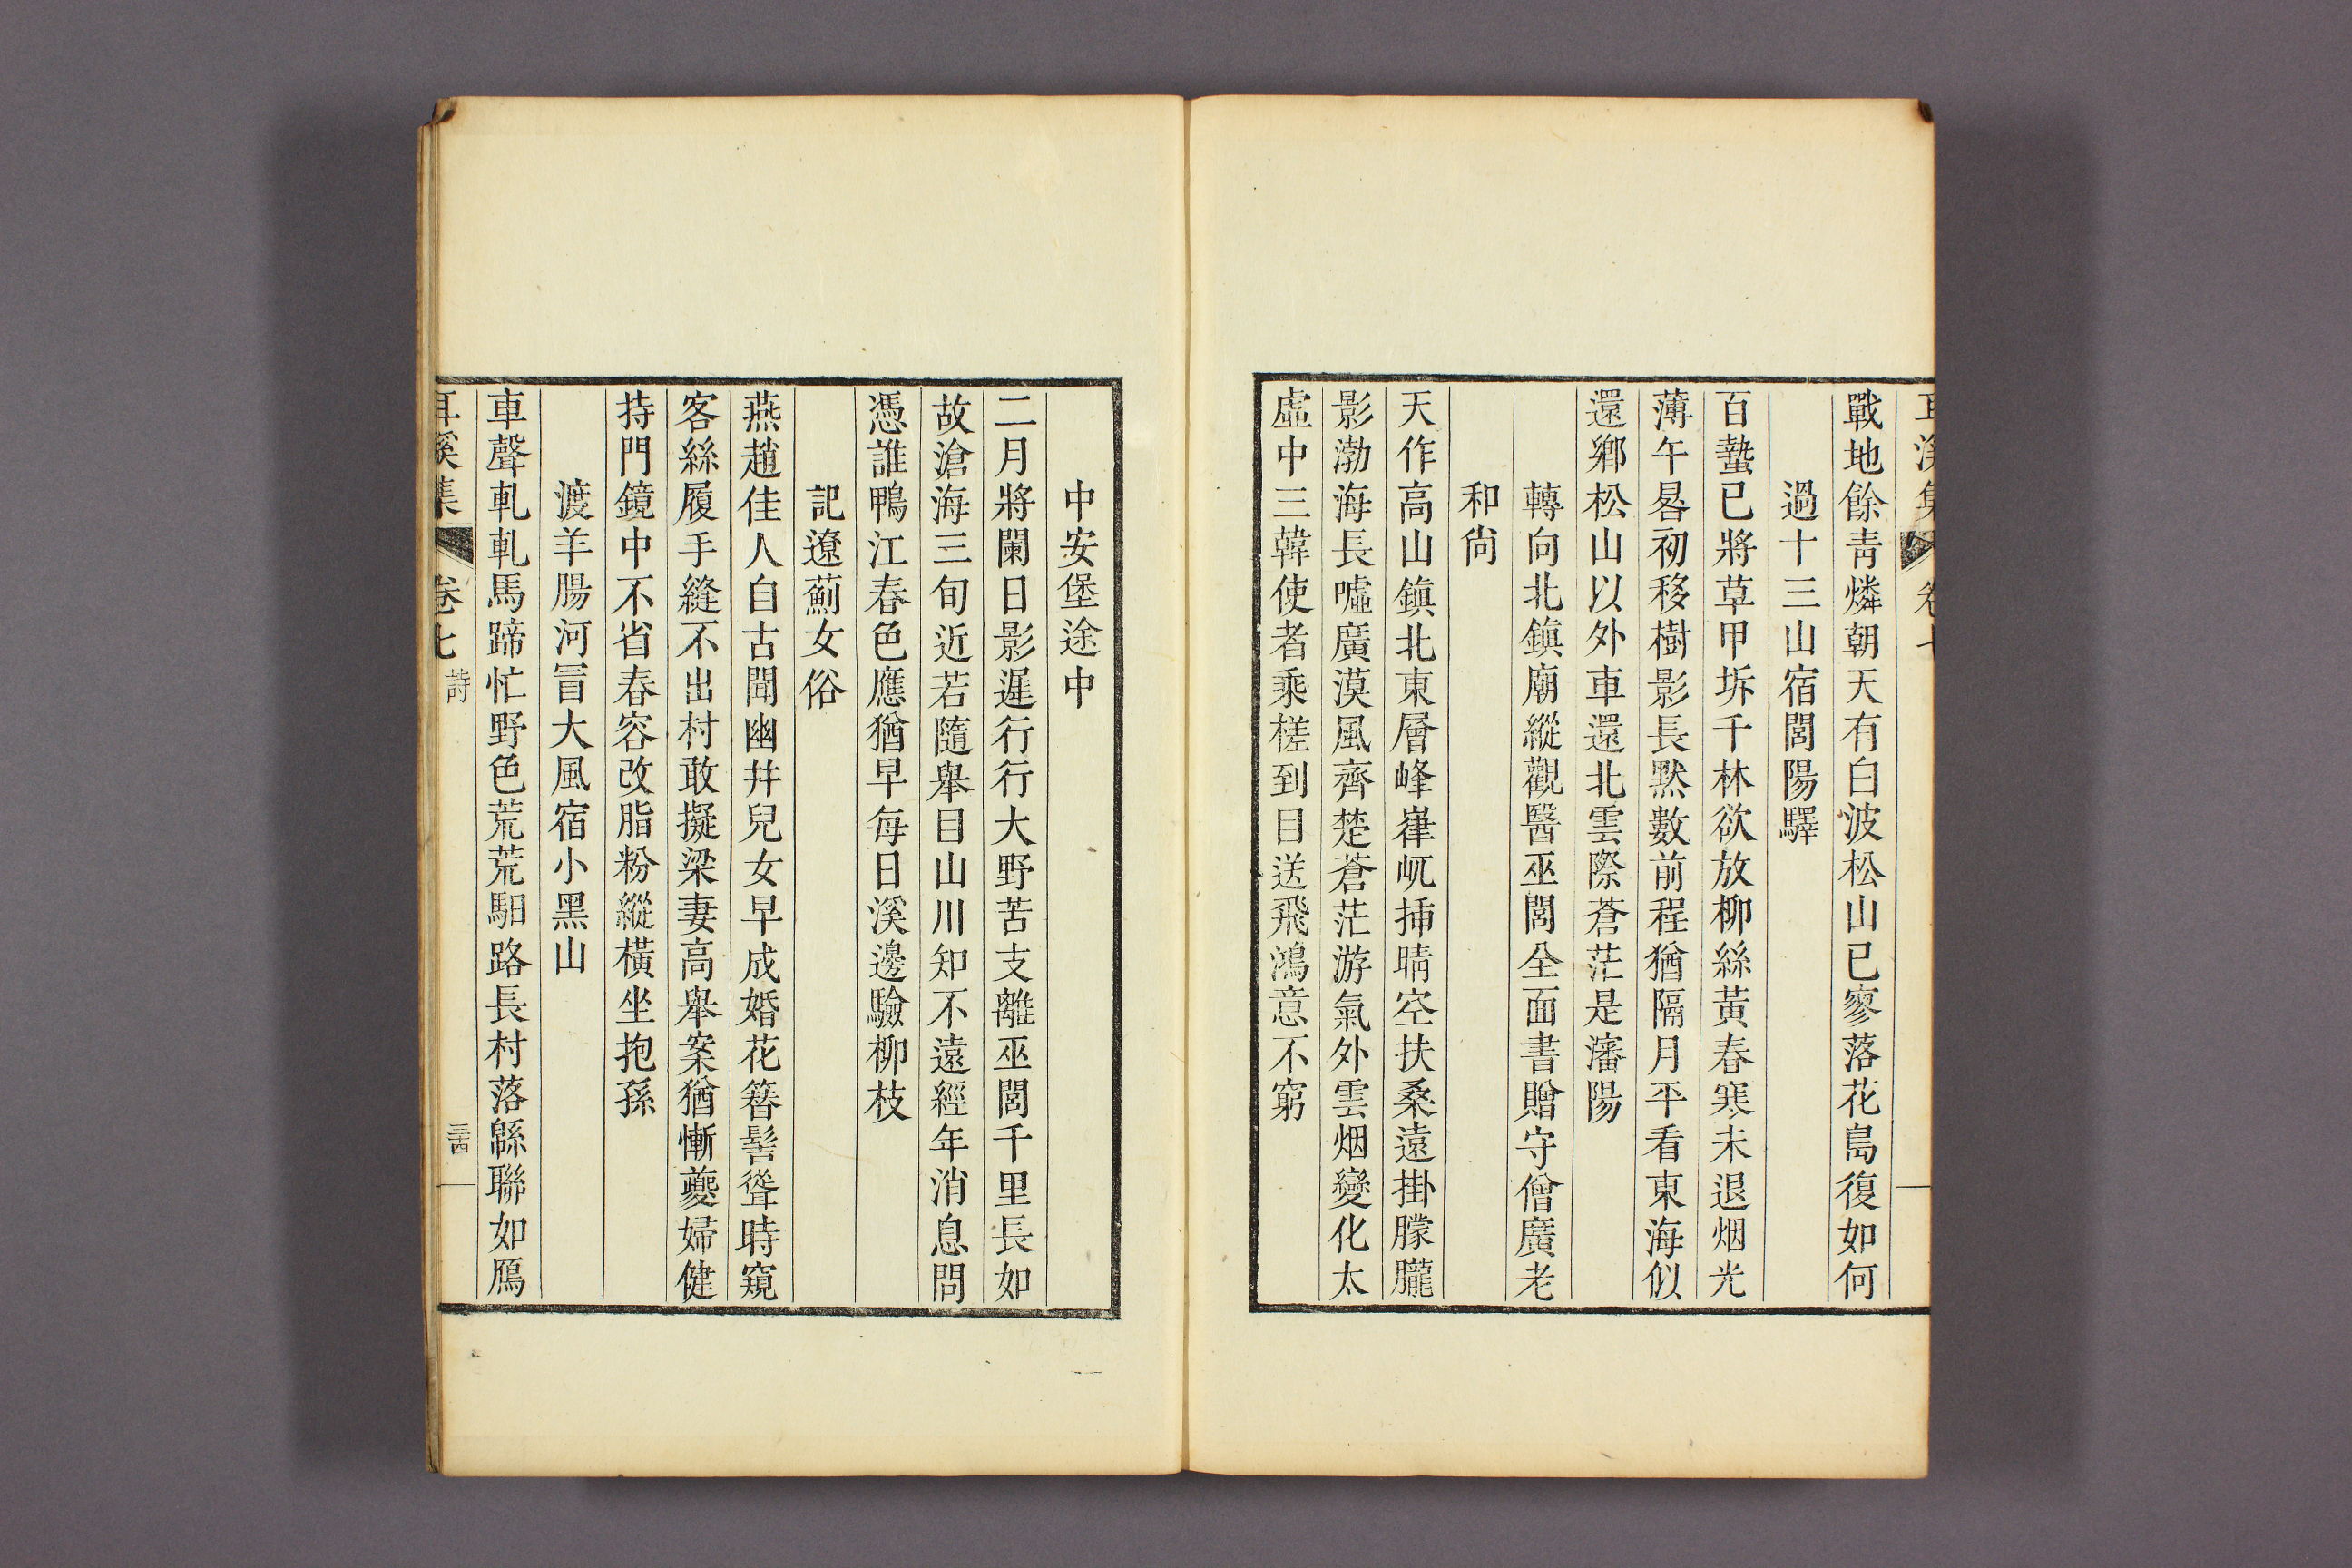 耳溪集 卷七
戰地餘靑燐朝天有白波松山已寥落花島復如何
過十三山宿閭陽驛
百蟄已將草甲坼千林欲放柳絲黃春寒未退烟光
薄午晷初移樹影長黙數前程猶隔月平看東海似
還鄕松山以外車還北雲際蒼茫是瀋陽
轉向北鎭廟縱觀醫巫閭全面書贈守僧廣老
和尙
天作高山鎭北東層峰嵂屼揷晴空扶桑遠掛朦朧
影渤海長噓廣漠風齊楚蒼茫游氣外雲烟變化太
虛中三韓使者乘槎到目送飛鴻意不窮
中安堡途中
二月將闌日影遲行行大野苦支離巫閭千里長如
故滄海三旬近若隨舉目山川知不遠經年消息問
憑誰鴨江春色應猶早每日溪邊驗柳枝
記遼薊女俗
燕趙佳人自古聞幽幷兒女早成婚花簪髻聳時窺
客絲履手縫不出村敢擬梁妻高舉案猶慚夔婦健
持門鏡中不省春容改脂粉縱橫坐抱孫
渡羊腸河冒大風宿小黑山
車聲軋軋馬蹄忙野色荒荒馹路長村落緜聯如鴈
耳溪集 卷七 詩 三十四